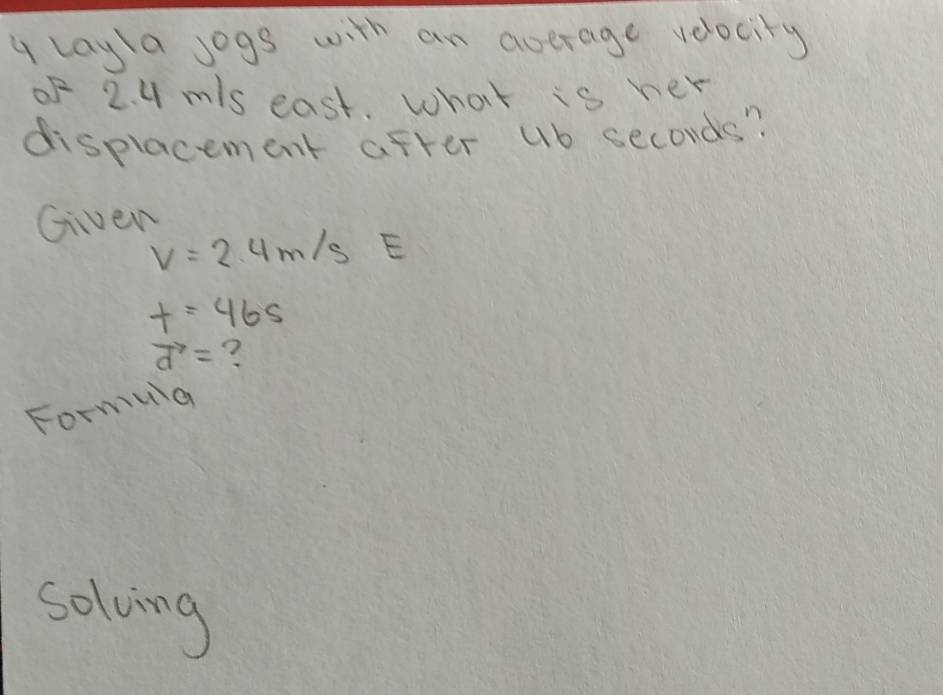 4 Layla jogs with an average velocity
of 2.4 m/s east. What is her
displacement after 46 seconds?
Given
V = 2.4m/s E
t = 46s
d⃗ = ?
Formula
Solving